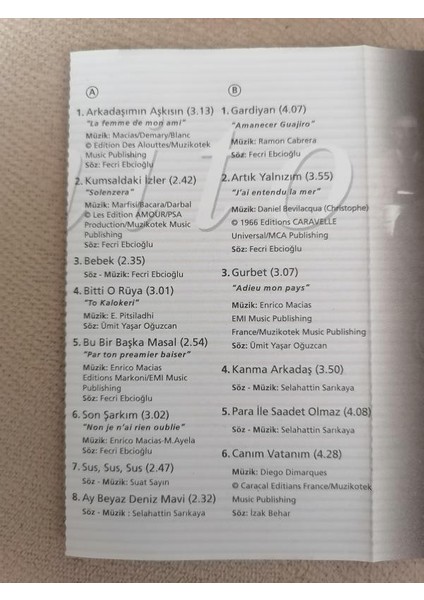 A
1. Arkadaşımın Aşkısın (3.13)
"La femme de mon ami"
Müzik: Macias/Demary/Blanc
© Edition Des Alouttes/Muzikotek
Music Publishing
Söz: Fecri Ebcioğlu
2. Kumsaldaki İzler (2.42)
"Solenzera"
Müzik: Marfisi/Bacara/Darbal
© Les Edition AMOUR/PSA
Production/Muzikotek Music
Publishing
Söz: Fecri Ebcioğlu
3. Bebek (2.35)
Söz - Müzik: Fecri Ebcioğlu
4. Bitti O Rüya (3.01)
"To Kalokeri"
Müzik: E. Pitsiladhi
Söz: Ümit Yaşar Oğuzcan
5. Bu Bir Başka Masal (2.54)
"Par ton preamier baiser"
Müzik: Enrico Macias
Editions Markoni/EMI Music
Publishing
Söz: Fecri Ebcioğlu
6. Son Şarkım (3.02)
"Non je n'ai rien oublie"
Müzik: Enrico Macias-M.Ayela
Söz: Fecri Ebcioğlu
7. Sus, Sus, Sus (2.47)
Söz - Müzik: Suat Sayın
8. Ay Beyaz Deniz Mavi (2.32)
Söz - Müzik : Selahattin Sarıkaya
B
1. Gardiyan (4.07)
"Amanecer Guajiro"
Müzik: Ramon Cabrera
Söz: Fecri Ebcioğlu
2. Artık Yalnızım (3.55)
"J'ai entendu la mer"
Müzik: Daniel Bevilacqua (Christophe)
© 1966 Editions CARAVELLE
Universal/MCA Publishing
Söz: Fecri Ebcioğlu
3. Gurbet (3.07)
"Adieu mon pays"
Müzik: Enrico Macias
EMI Music Publishing
France/Muzikotek Music Publishing
Söz: Ümit Yaşar Oğuzcan
4. Kanma Arkadaş (3.50)
Söz - Müzik: Selahattin Sarıkaya
5. Para İle Saadet Olmaz (4.08)
Söz - Müzik: Selahattin Sarıkaya
6. Canım Vatanım (4.28)
Müzik: Diego Dimarques
© Caracal Editians France/Muzikotek
Music Publishing
Söz: İzak Behar